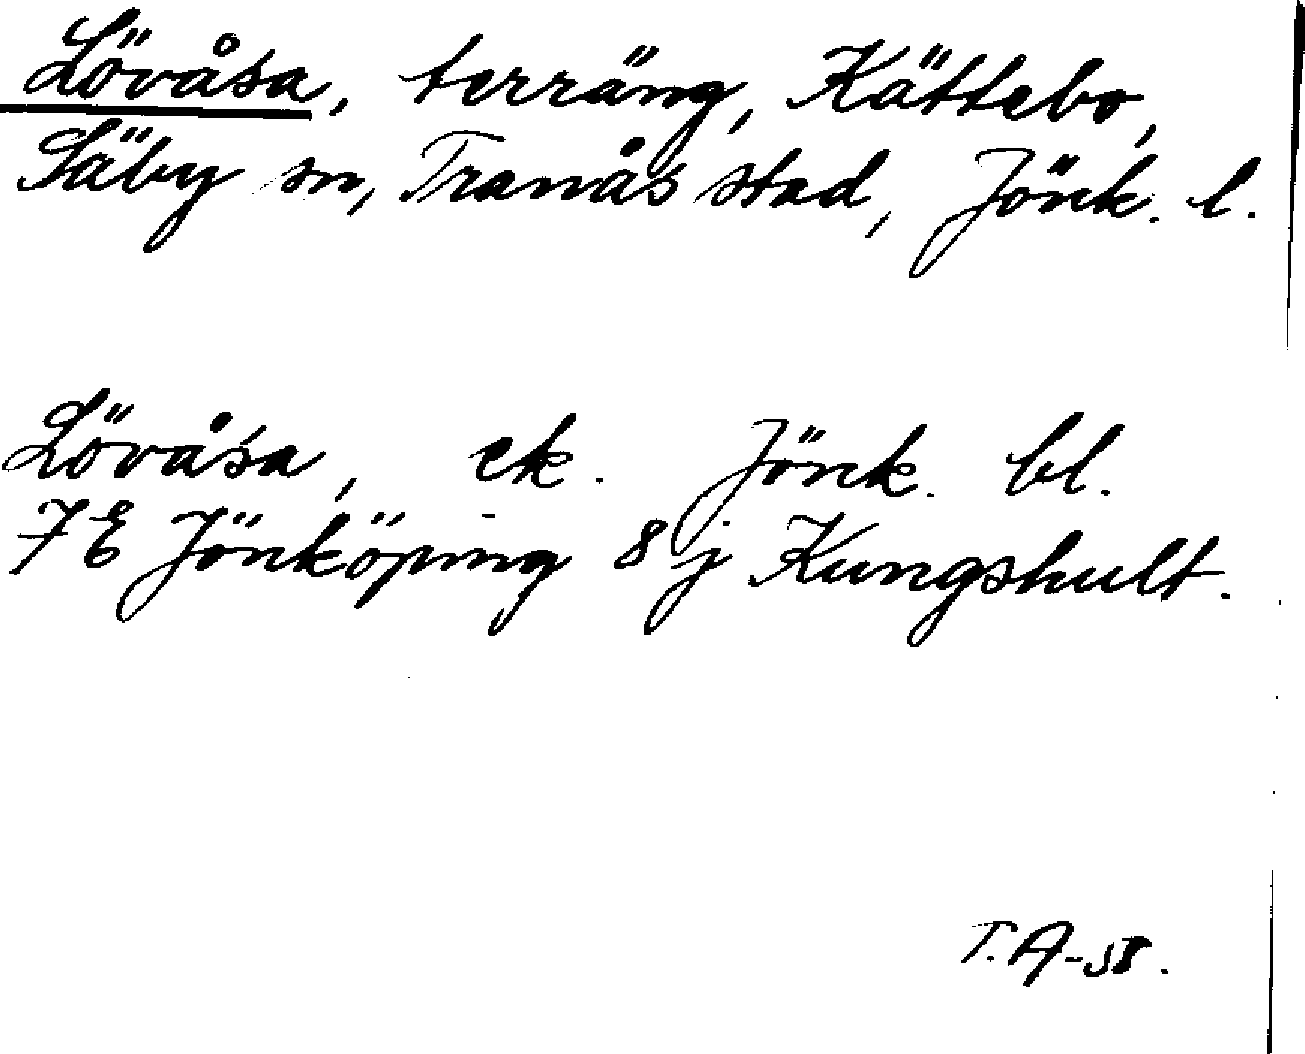 Lövåsa, terräng, Kättebo,
Säby sn, Tranås stad, Jönk. l.
Lövåsa, ek. Jönk. bl.
7E Jönköping 8j Kungshult.
T.A-58.